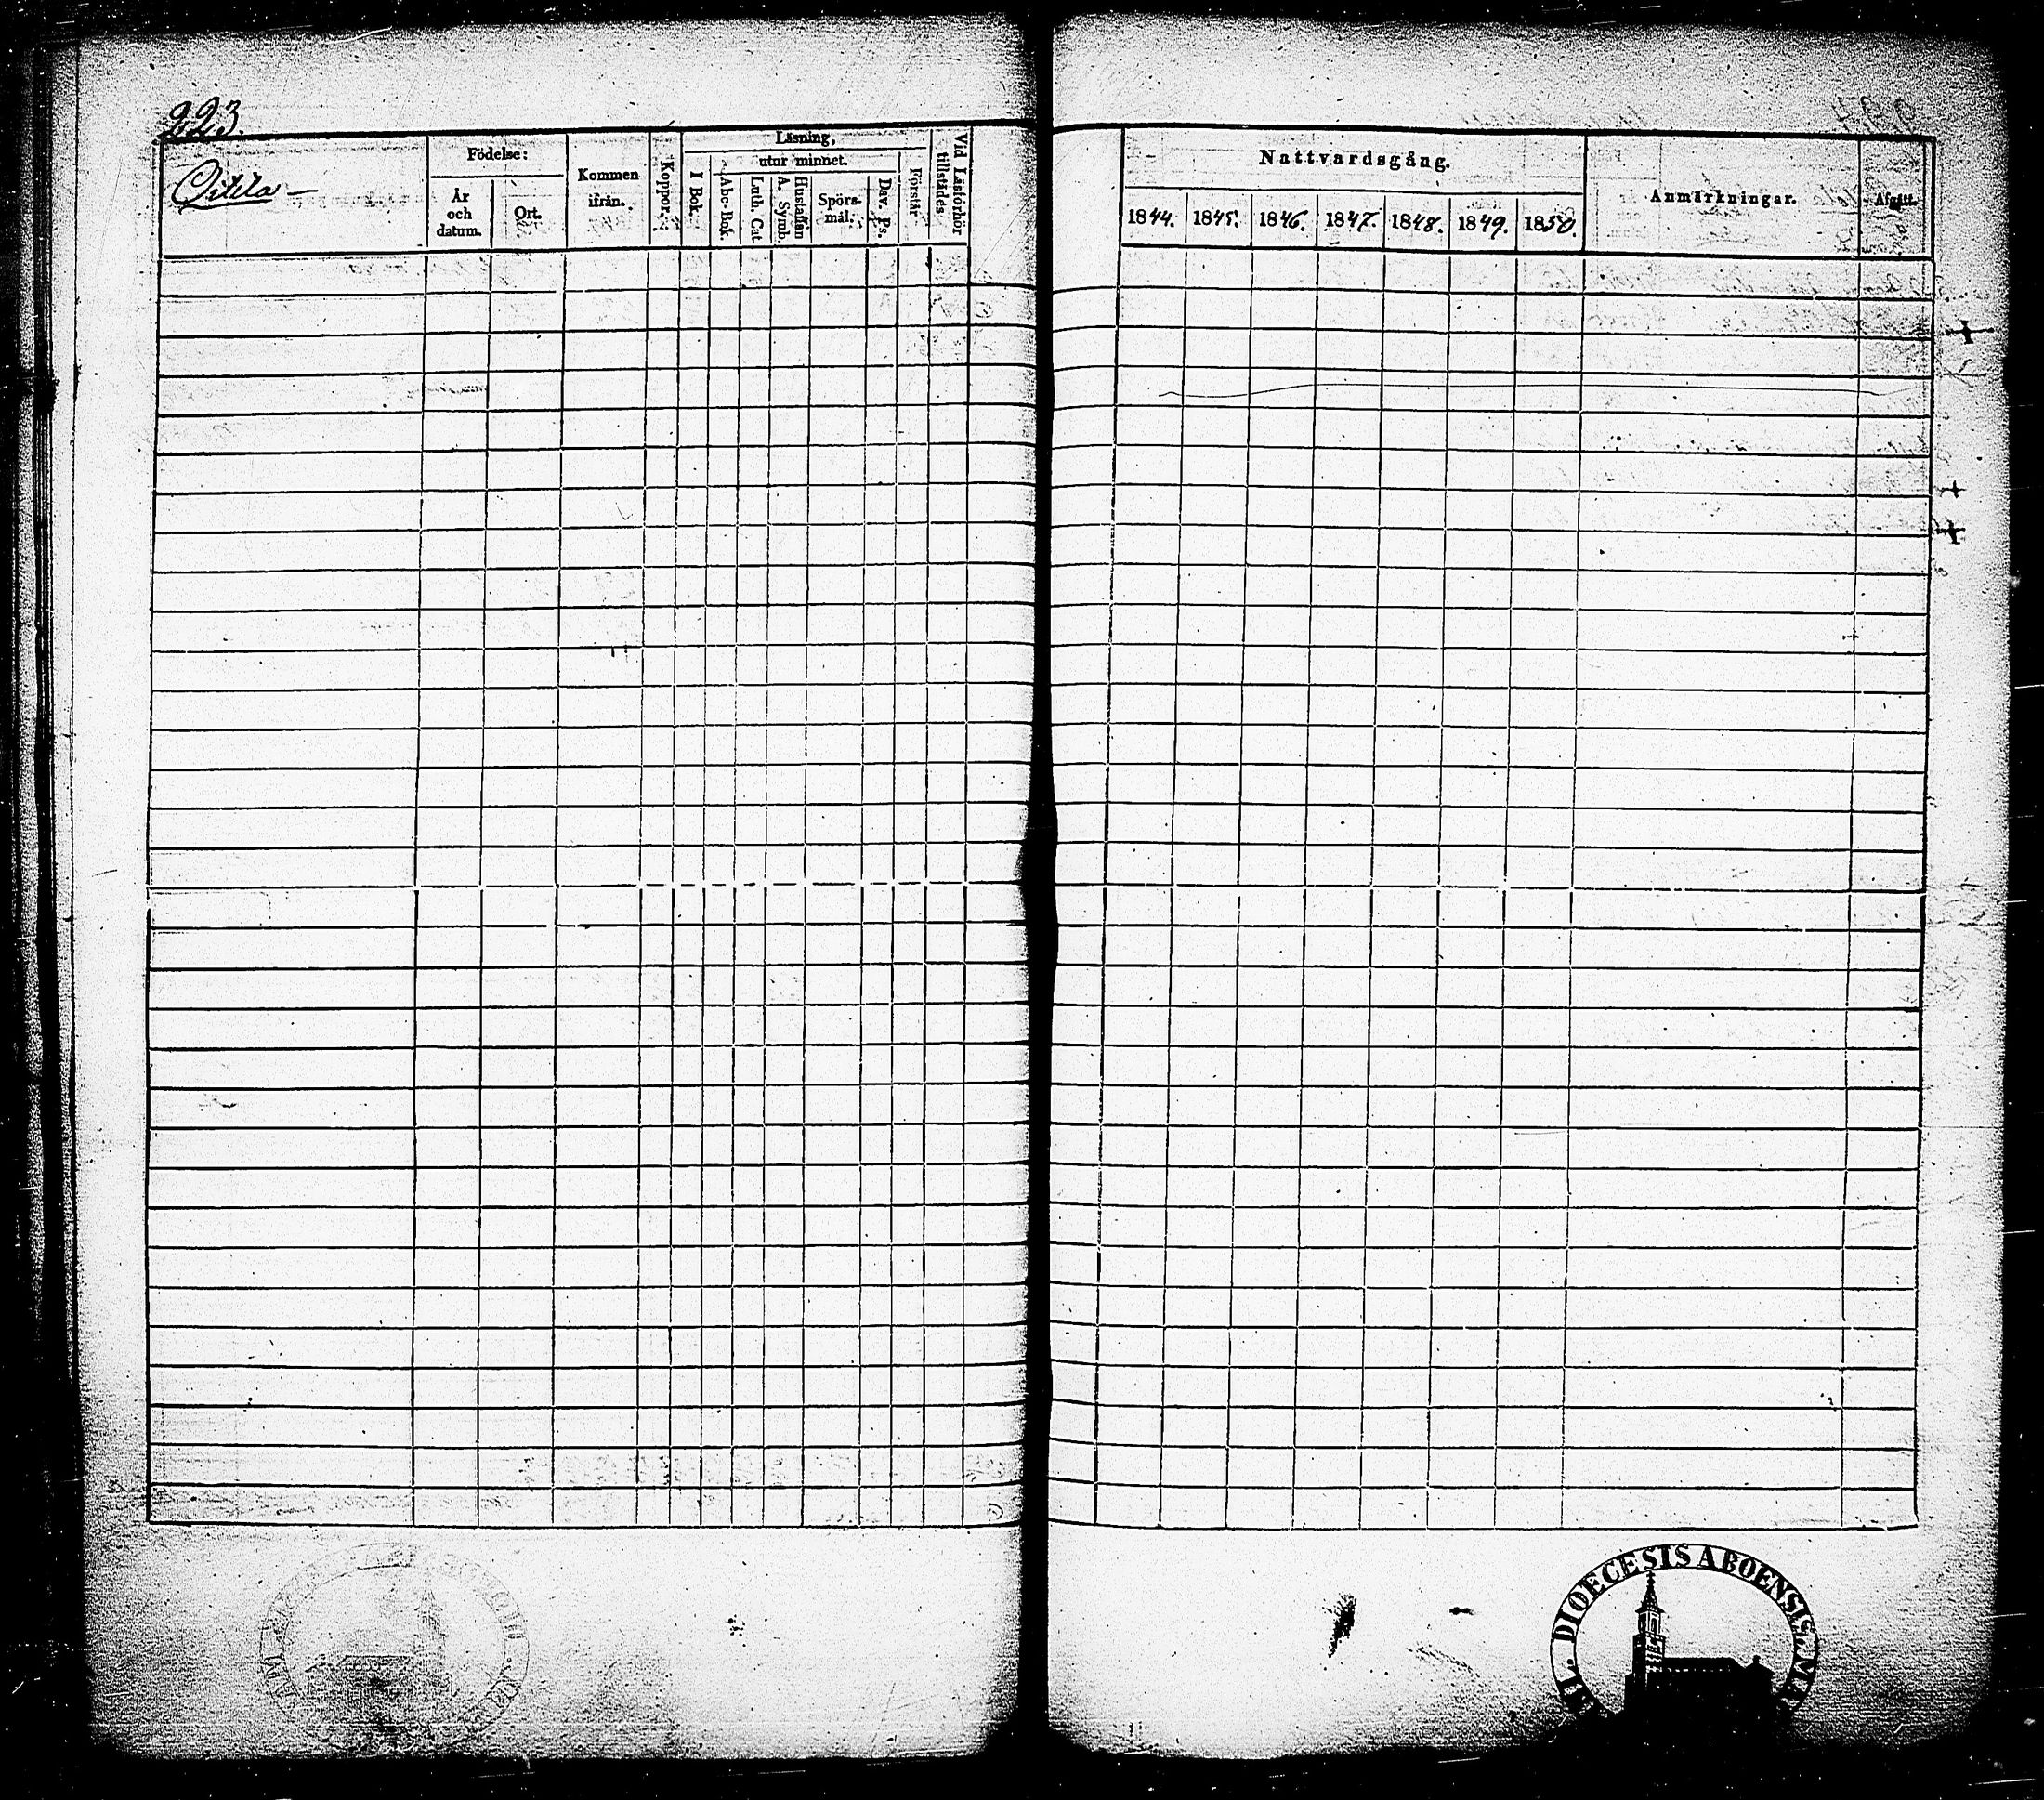 223.
Födelse:
År
och
datum.
Ort.
Kommen
ifrån.
Koppor.
Läsning,
utur minnet.
I Bok.
Abc-Bok.
Luth. Cat.
Hustaflan
A. Symb.
Spörs-
mål.
Dav. Ps.
Förstår
Vid Läsförhör
tillstädes
Nattvardsgång.
1844. 1845. 1846. 1847. 1848. 1849. 1850.
Anmärkningar.
Afgått.
DIOECESIS ABOENSIS